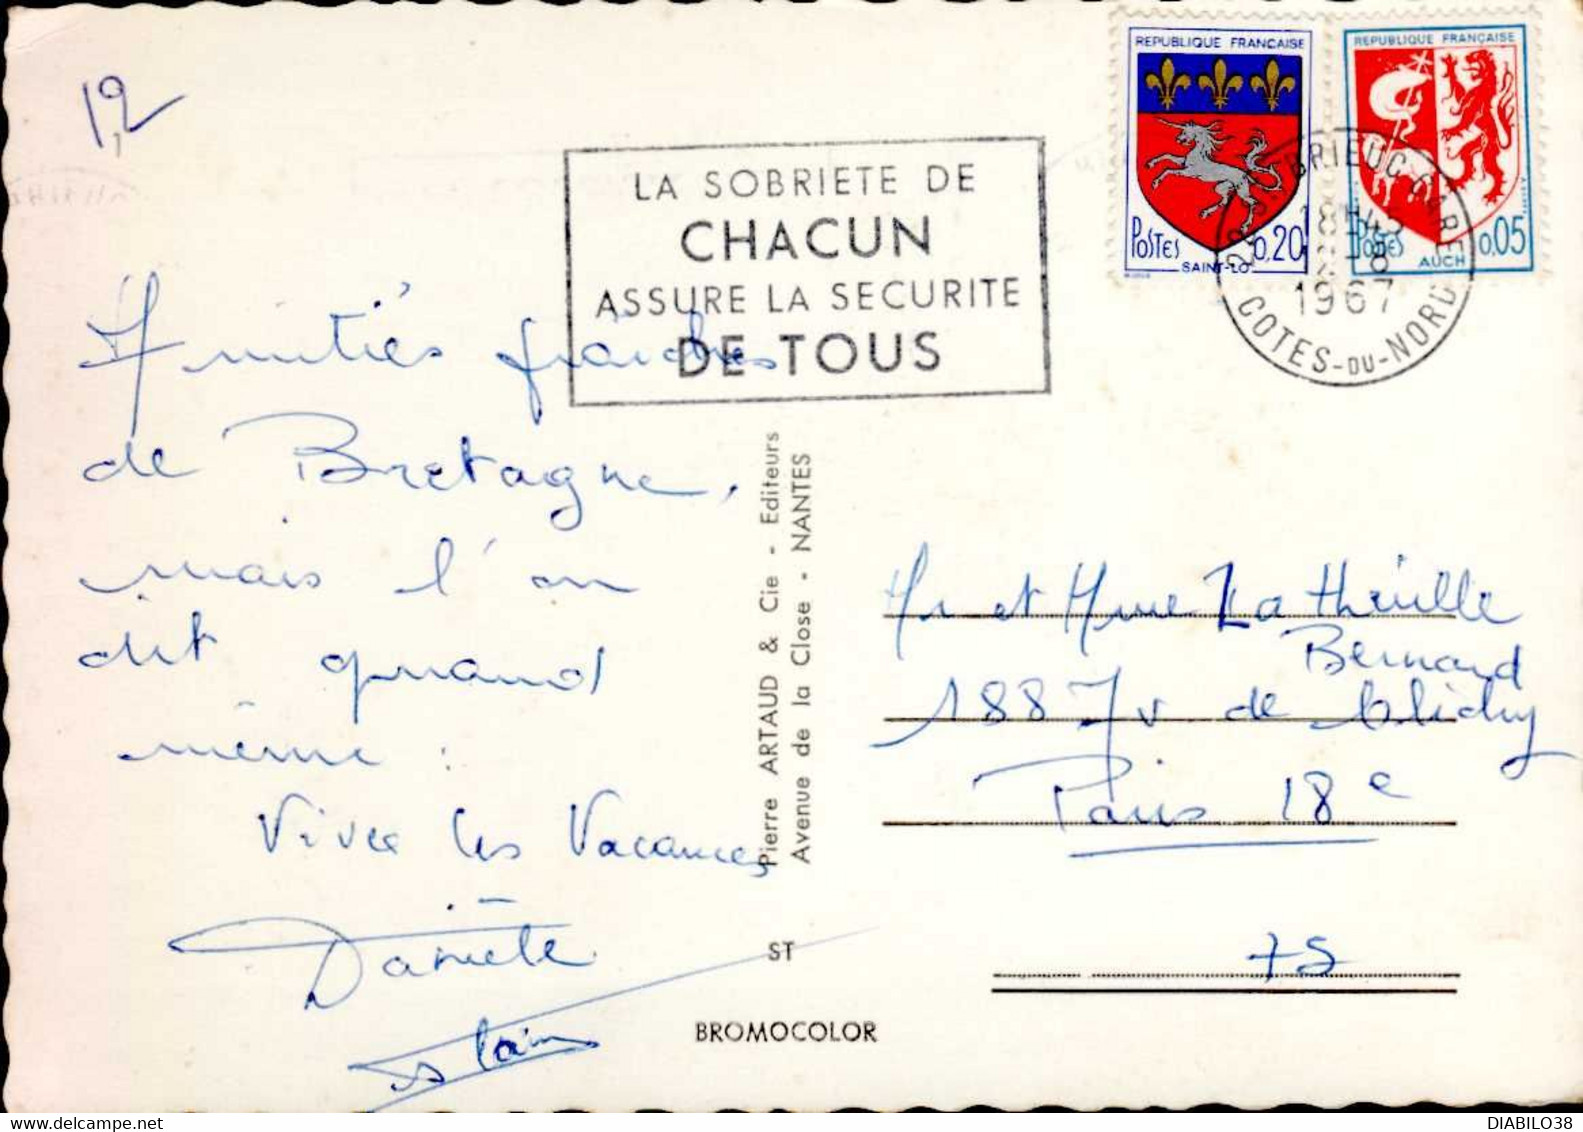 1,2
REPUBLIQUE FRANCAISE
POSTES 0,20
SAINT-LO
REPUBLIQUE FRANÇAISE
POSTES 0,05
AUCH
ST BRIEUC GARE
18H45
1967
COTES-DU-NORD
LA SOBRIETE DE
CHACUN
ASSURE LA SECURITE
DE TOUS
Amitiés fraîches
de Bretagne,
mais l'on
dit quand
même :
Vive les Vacances
Danièle
Alain
Pierre ARTAUD & Cie - Editeurs
Avenue de la Close - NANTES
ST
BROMOCOLOR
Mr et Mme La Theulle
Bernard
188 Av de Clichy
Paris 18e
75
DIABILO38